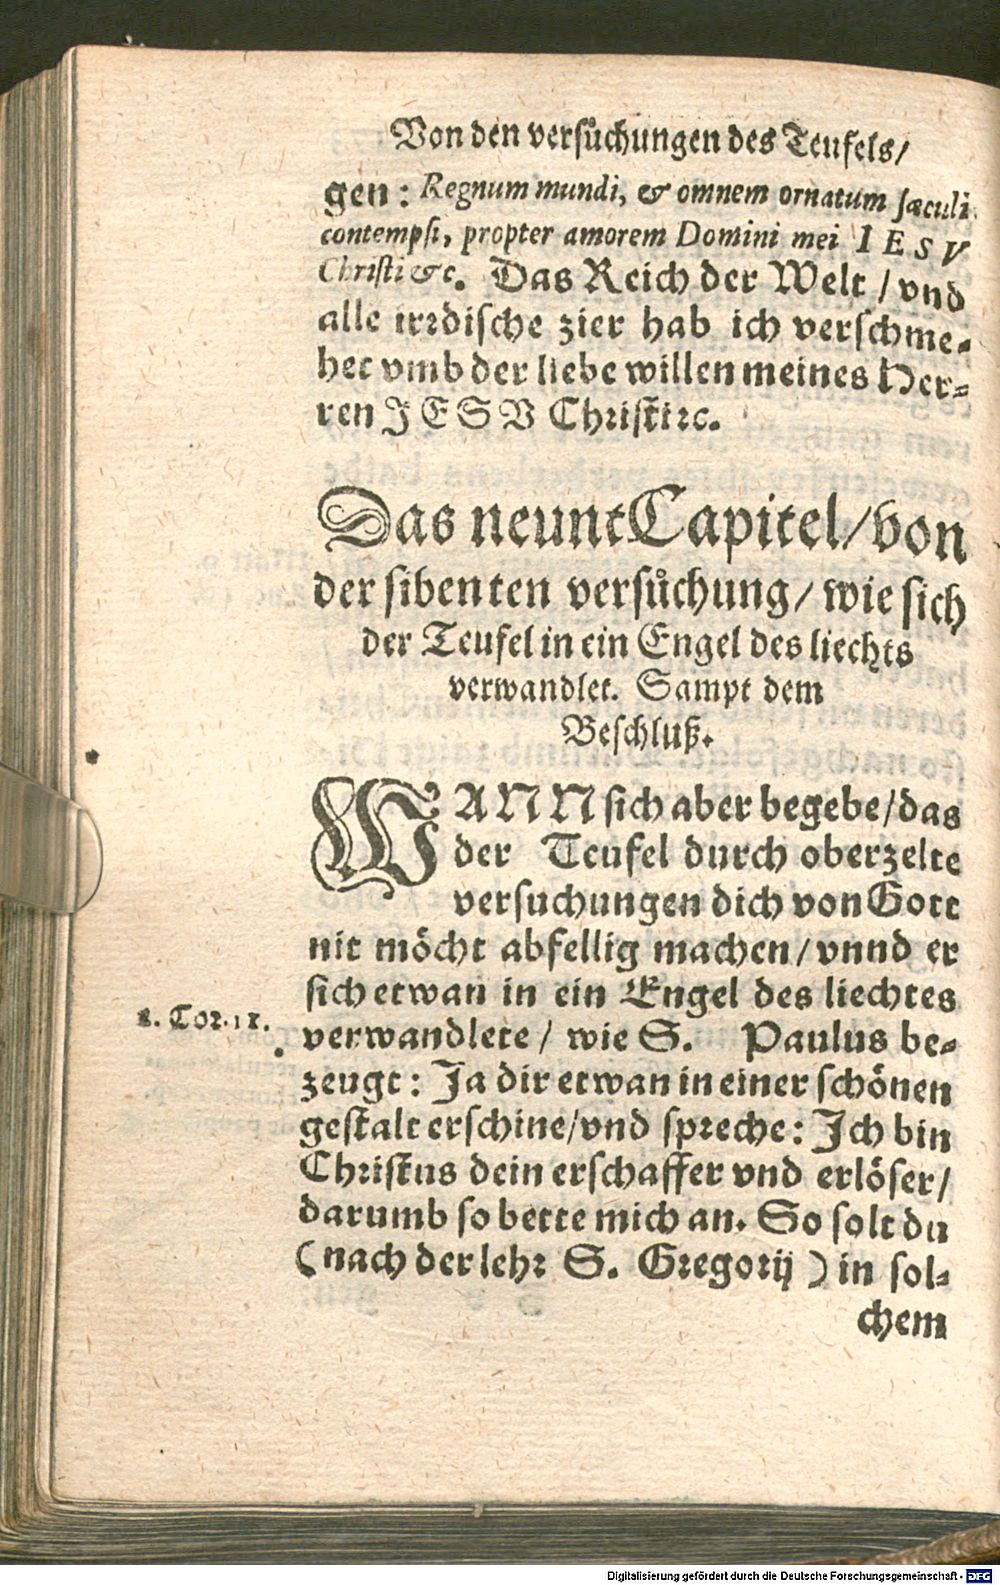 Von den versůchungen des Teufels/
gen: Regnum mundi, & omnem ornatum sæculi
contempsi, propter amorem Domini mei IESV
Christi &c. Das Reich der Welt / vnd
alle irrdische zier hab ich verschme-
het vmb der liebe willen meines Her-
ren JESV Christi ꝛc.
Das neunt Capitel/von
der sibenten versůchung/ wie sich
der Teufel in ein Engel des liechts
verwandlet. Sampt dem
Beschluß.
WANN sich aber begebe/das
der Teufel durch oberzelte
versuchungen dich von Gott
nit möcht abfellig machen/vnnd er
sich etwan in ein Engel des liechtes
2. Cor. 11.
verwandlete / wie S. Paulus be-
zeugt: Ja dir etwan in einer schönen
gestalt erschine/vnd spreche: Ich bin
Christus dein erschaffer vnd erlöser/
darumb so bette mich an. So solt du
(nach der lehr S. Gregorij) in sol-
chem
Digitalisierung gefördert durch die Deutsche Forschungsgemeinschaft - DFG